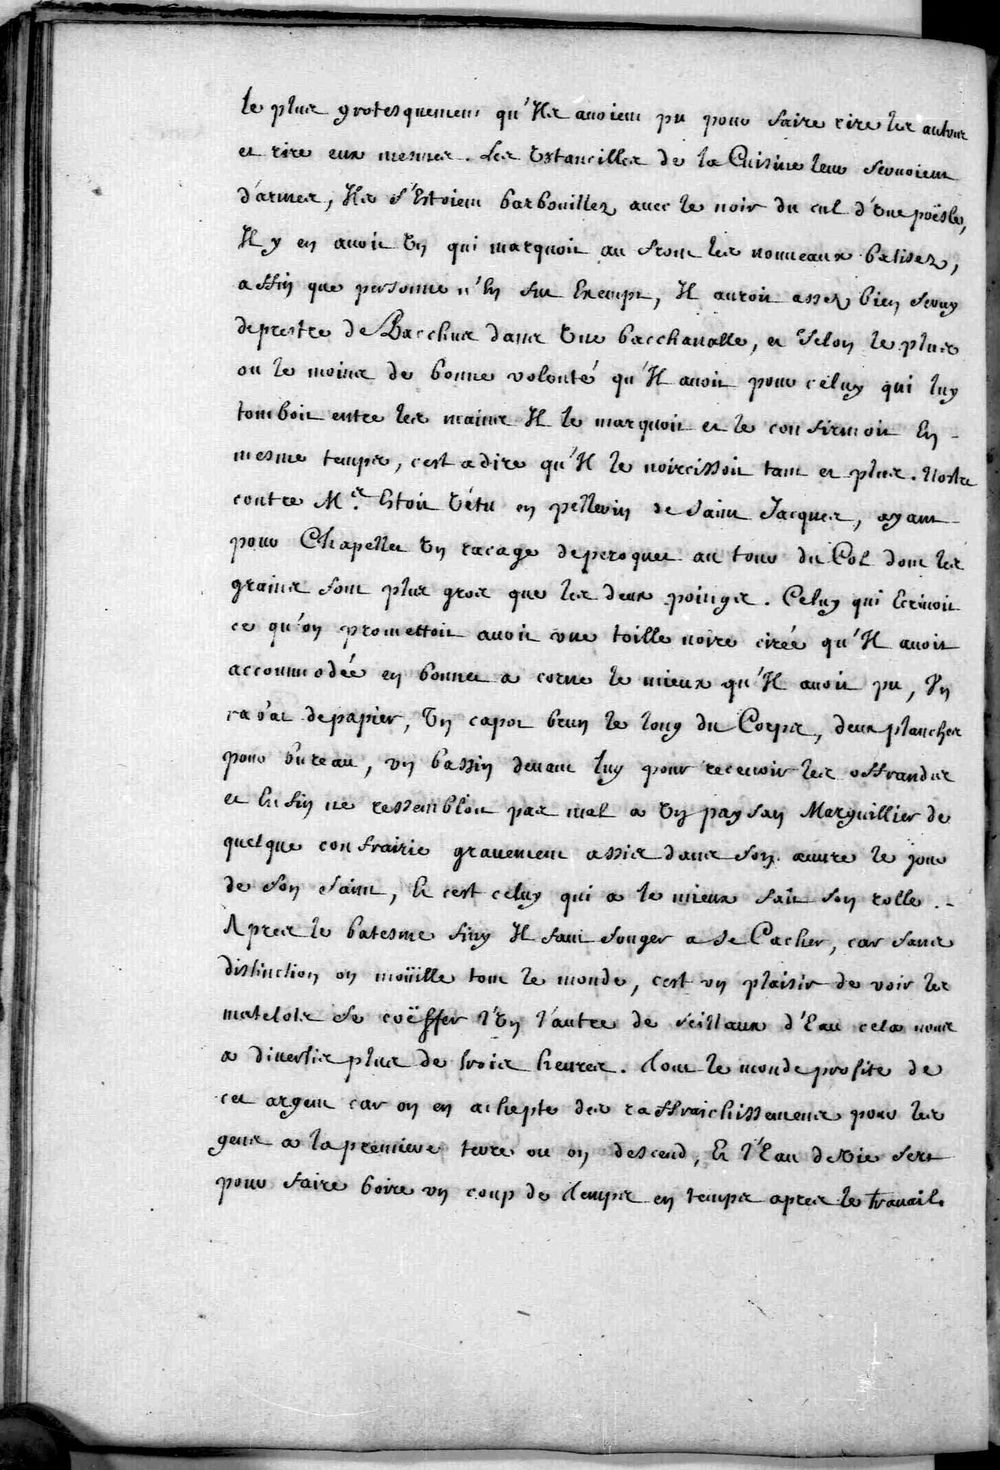 le plus grotesquement qu'Ils avoient pu pour faire rire les autres
et rire eux mesmes. Les Ustancilles de la Cuisine leur servoient
d'armes, Ils s'Estoient barbouillez avec le noir du cul d'Une poësle,
Il y en avoit Un qui marquoit au front les nouveaux batisez,
affin que personne n'En fut Exempt, Il auroit assez bien servy
de prestre de Bacchus dans Une bacchanalle, et selon le plus
ou le moins de bonne volonté qu'Il avoit pour celuy qui luy
tomboit entre les mains Il le marquoit et le confirmoit En
mesme temps, c'est a dire qu'Il le noircissoit tant et plus. Nostre
contre M.e Estoit Vétu en pellerin de Saint Jacques, ayant
pour Chapellet Un racage de peroquet au tour du Col dont les
grains sont plus gros que les deux poings. Celuy qui Ecrivoit
ce qu'on promettoit avoit une toille noire cirée qu'Il avoit
accommodée en bonnet a corne le mieux qu'Il avoit pu, Un
rabat de papier, Un capot brun le long du Corps, deux planches
pour bureau, un bassin devant luy pour recevoir les offrandes
et Enfin ne ressembloit pas mal a Un paysan Marguillier de
quelque confrairie gravement assis dans son œuvre le jour
de son saint, Et c'est celuy qui a le mieux fait son rolle.
Apres le batesme finy Il faut songer a se Cacher, car sans
distinction on moüille tout le monde, c'est un plaisir de voir les
matelots se coëffer l'Un l'autre de seillaux d'Eau cela nous
a divertis plus de trois heures. Tout le monde profite de
cet argent car on en achepte des raffraichissemens pour les
gens a la premiere terre ou on descend, Et l'Eau de Vie sert
pour faire boire un coup de temps en temps apres le travail.